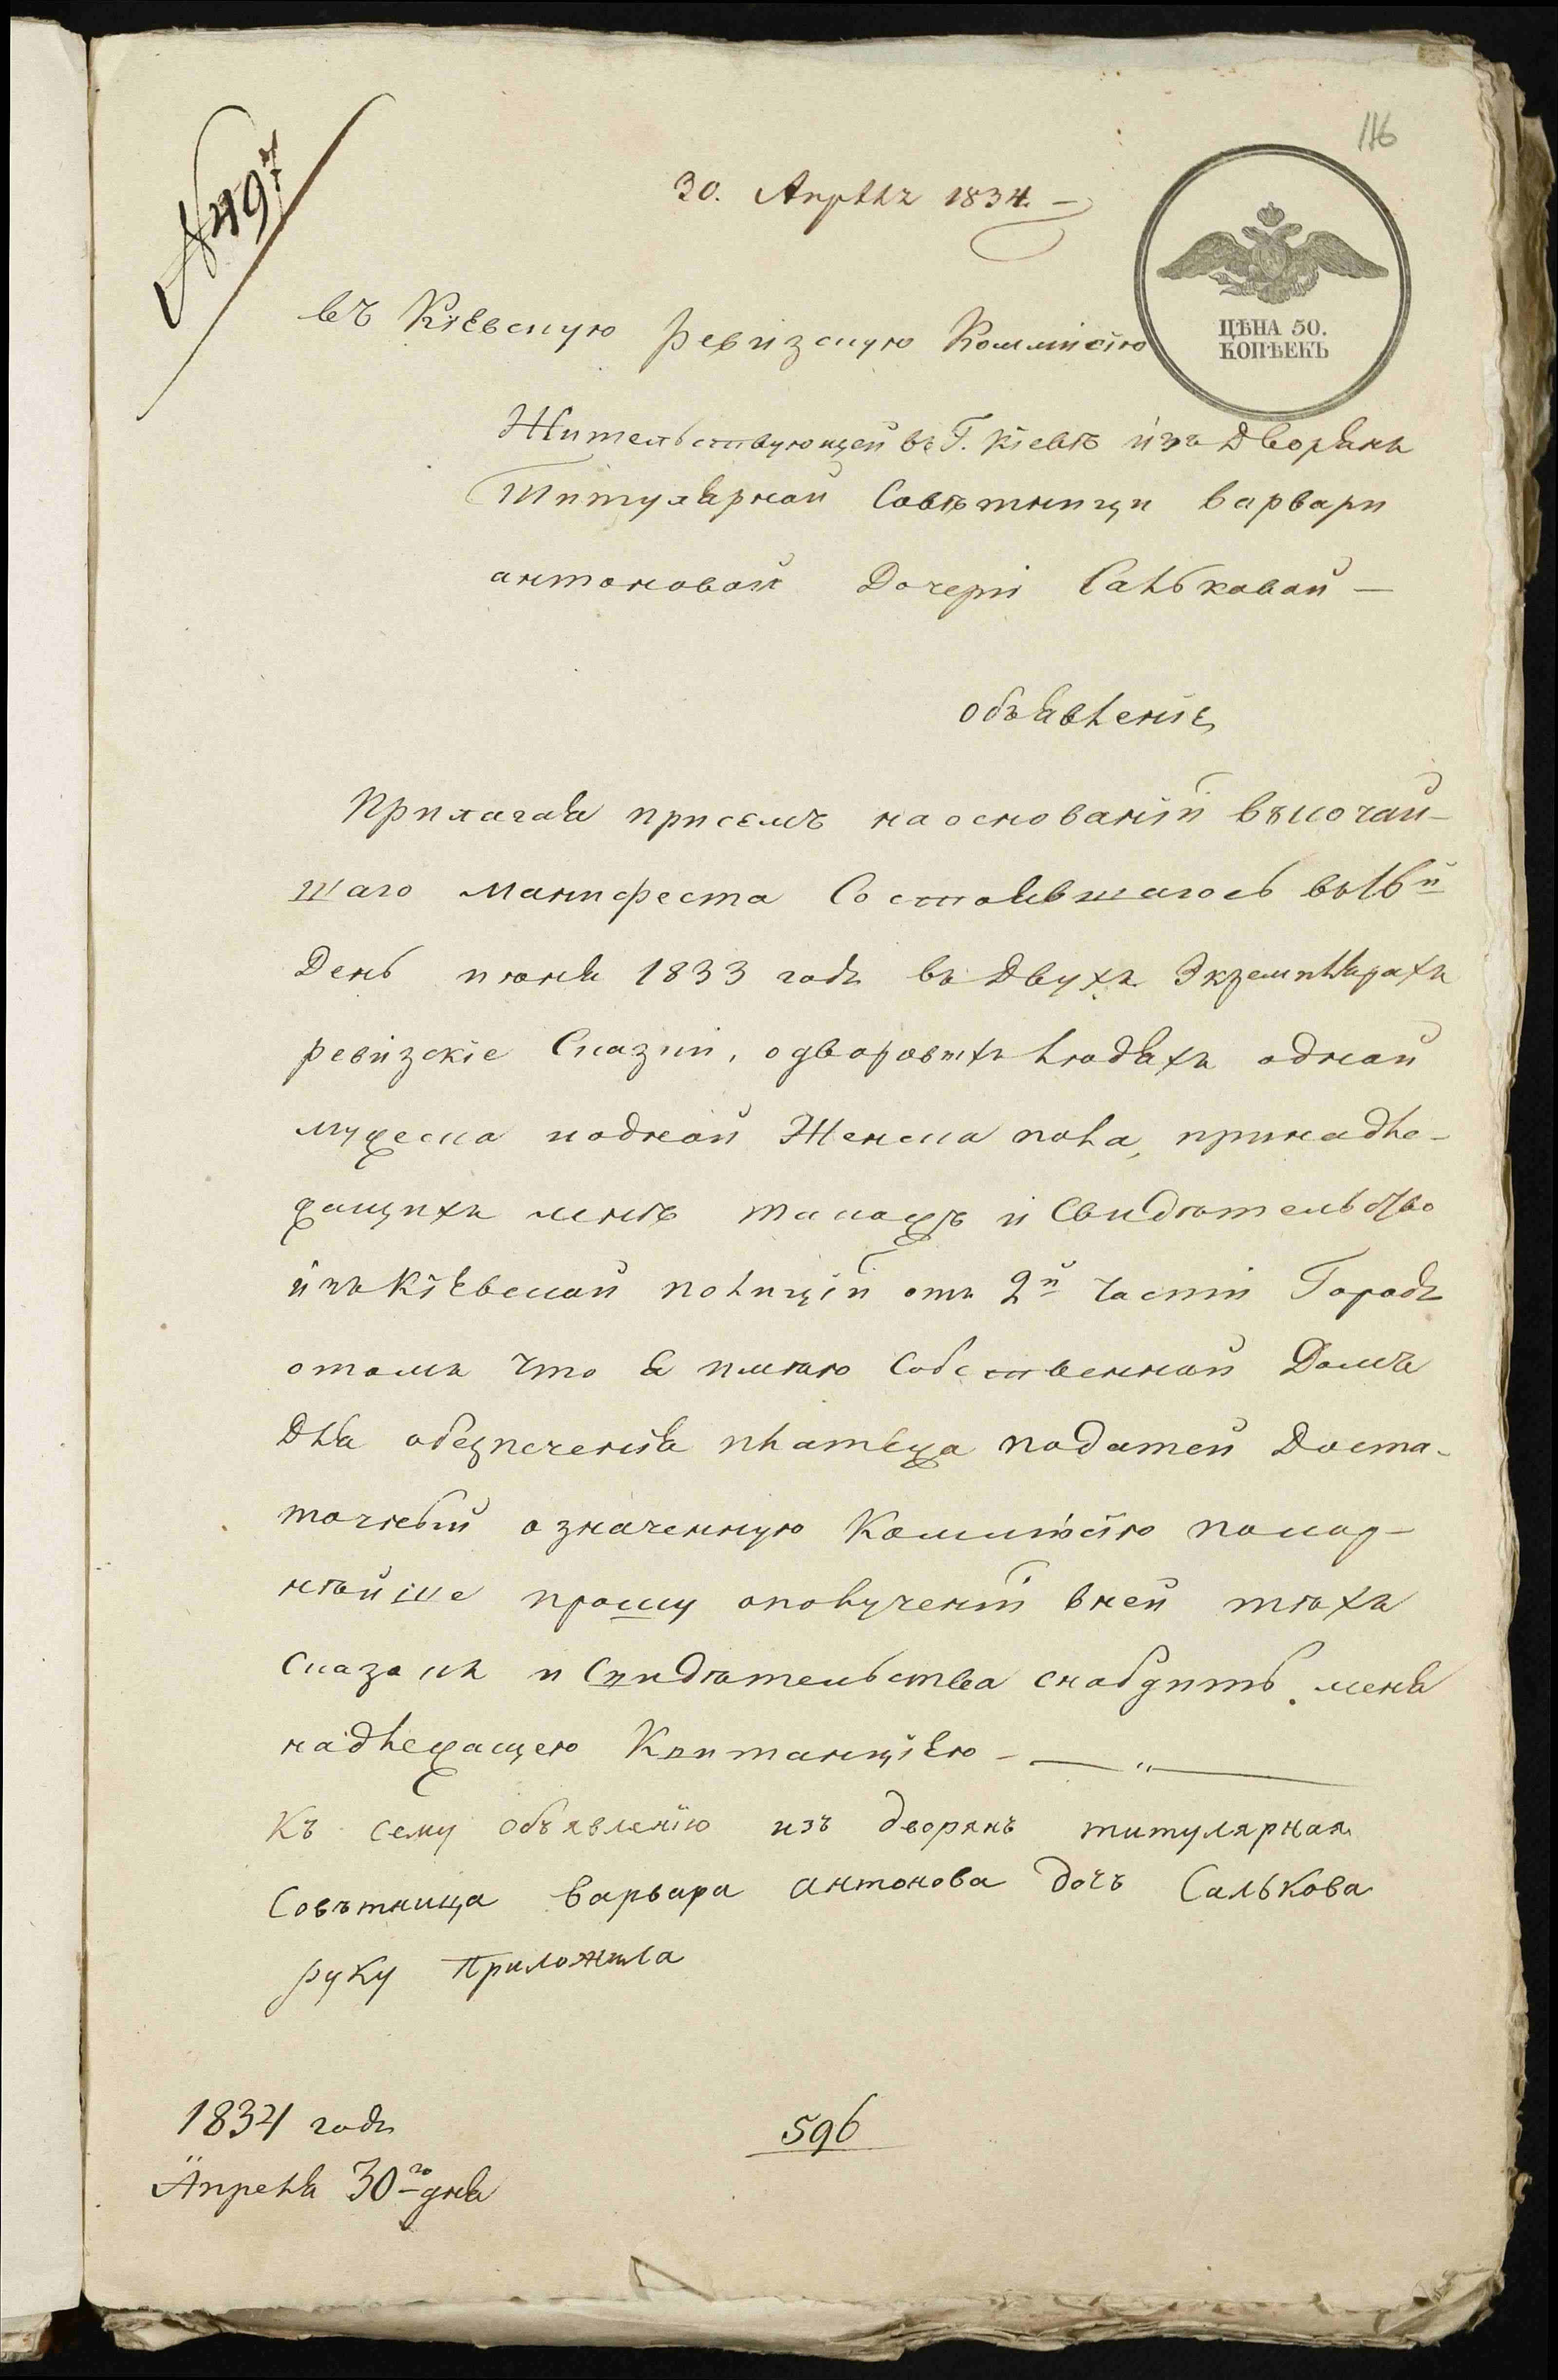 116
№ 497
30. Апрѣль 1834.
ЦѢНА 50.
КОПѢЕКЪ
въ Кіевскую ревизскую Коммисію
Жительствующей въ Г. Кіевѣ изъ Дворянъ
Титулярной Совѣтници варвари
антоновой Дочери Сальковой —
объявленіе
Прилагая присемъ наоснованіи высочай-
шаго манифеста Состоявшагось въ 16й
День июня 1833 годъ въ Двухъ Экземплярахъ
ревизскіе Сказки, одворовыхъ людяхъ одной
мужеска иодной Женска пола, принадле-
жащихъ мнѣ такожъ и Свидѣтельство
изъ Кіевской полиціи отъ 2й Части Городъ
отомъ что я имѣю Собственной Домъ
Для обезпеченія платежа податей Доста-
точный означенную Коммисію покор-
нѣйше прошу ополученіи вней тѣхъ
Сказокъ и Свидѣтельства снабдить меня
надлежащею Квитанціею — "
Къ сему объявленію изъ дворянъ титулярная
Совѣтница варвара антонова дочь Салькова
руку приложила
1834 годъ
Апреля 30го дня
596